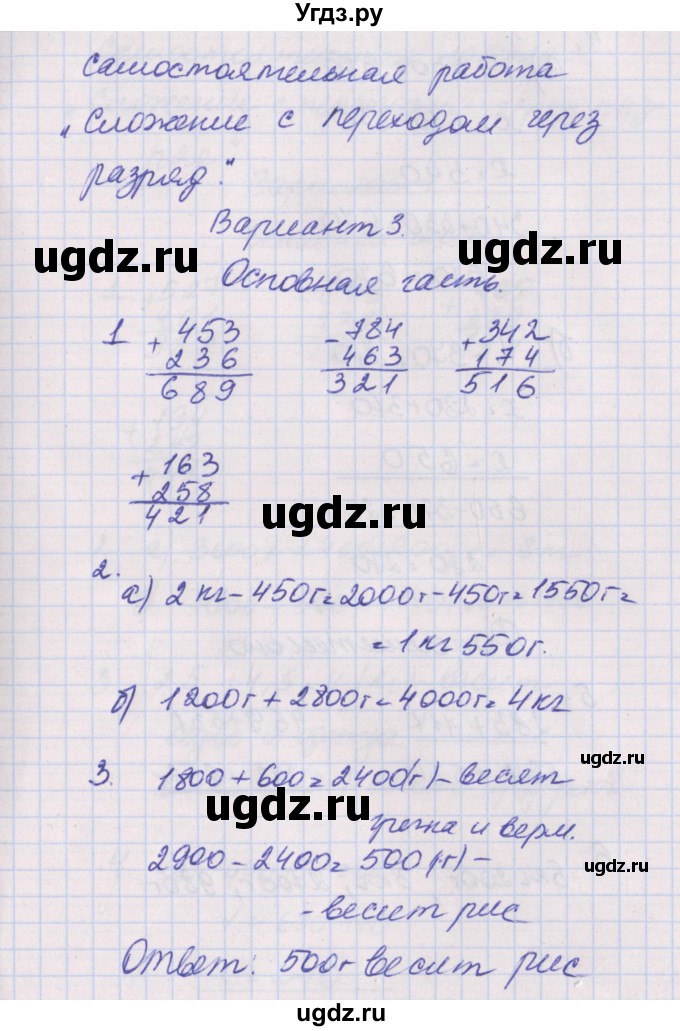 Угдз.ру
Самостоятельная работа
"Сложение с переходом через
разряд."
Вариант 3.
ugdz.ru ugdz.ru
Основная часть.
1 + 453 - 784 + 342
236 463 174
689 321 516
+ 163
258
421
ugdz.ru ugdz.ru
2.
а) 2 кг - 450г = 2000г - 450г = 1550г =
= 1 кг 550г.
б) 1200г + 2800г = 4000г = 4 кг
ugdz.ru
3. 1800 + 600 = 2400(г) - весят
ugdz.ru
гречка и верм.
2900 - 2400 = 500(г) -
ugdz.ru
- весит рис
Ответ: 500г весит рис
ugdz.ru
Угдз.ру